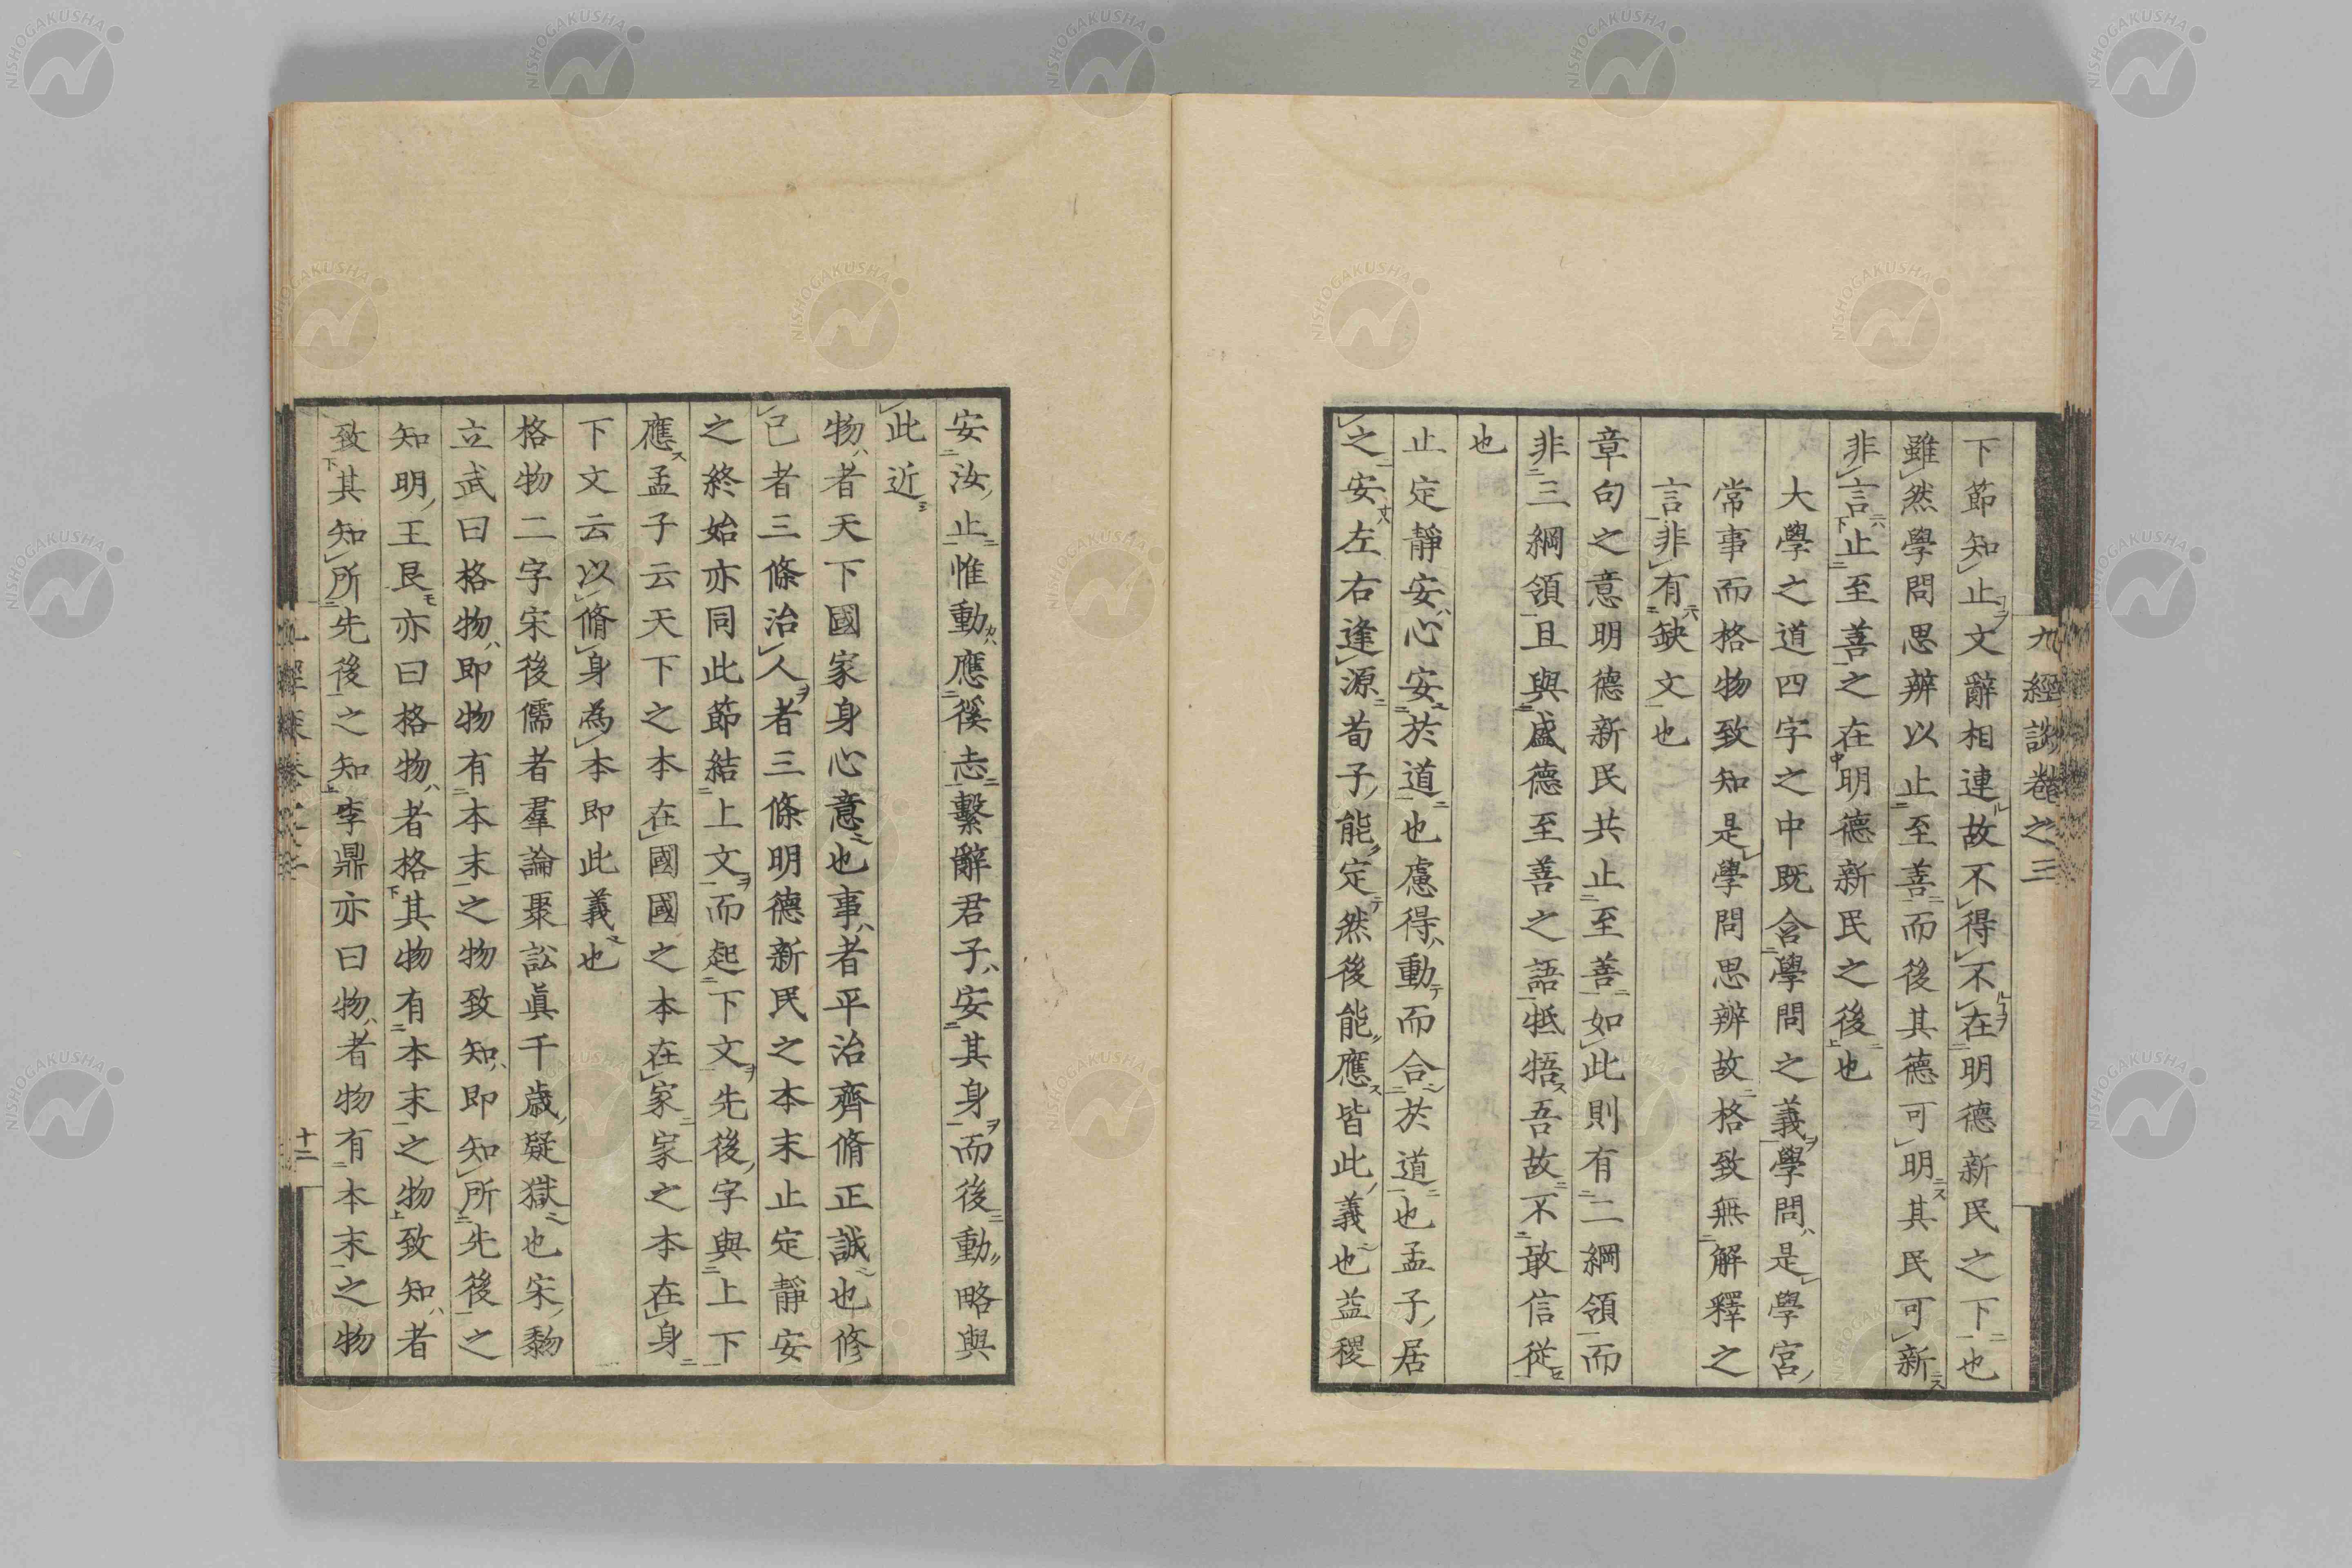 九經談卷之三
下節知止文辭相連故不得不在明德新民之下也
雖然學問思辨以止至善而後其德可明其民可新
非言止至善之在明德新民之後也
大學之道四字之中既含學問之義學問是學宮
常事而格物致知是學問思辨故格致無解釋之
言非有缺文也
章句之意明德新民共止至善如此則有二綱領而
非三綱領且與盛德至善之語牴牾吾故不敢信從
也
止定靜安心安於道也慮得動而合於道也孟子居
之安左右逢源荀子能定然後能應皆此義也益稷
安汝止惟動應徯志繫辭君子安其身而後動略與
此近
物者天下國家身心意也事者平治齊脩正誠也修
己者三條治人者三條明德新民之本末止定靜安
之終始亦同此節結上文而起下文先後字與上下
應孟子云天下之本在國國之本在家家之本在身
下文云以脩身為本即此義也
格物二字宋後儒者羣論聚訟眞千歲疑獄也宋黎
立武曰格物即物有本末之物致知即知所先後之
知明王艮亦曰格物者格其物有本末之物致知者
致其知所先後之知李鼎亦曰物者物有本末之物
十二
NISHOGAKUSHA